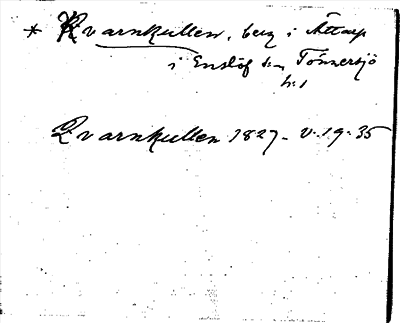 * Kvarnkullen, berg i Attarp
i Enslöf sn Tönnersjö
hd
Qvarnkullen 1827 - V. 19. 35